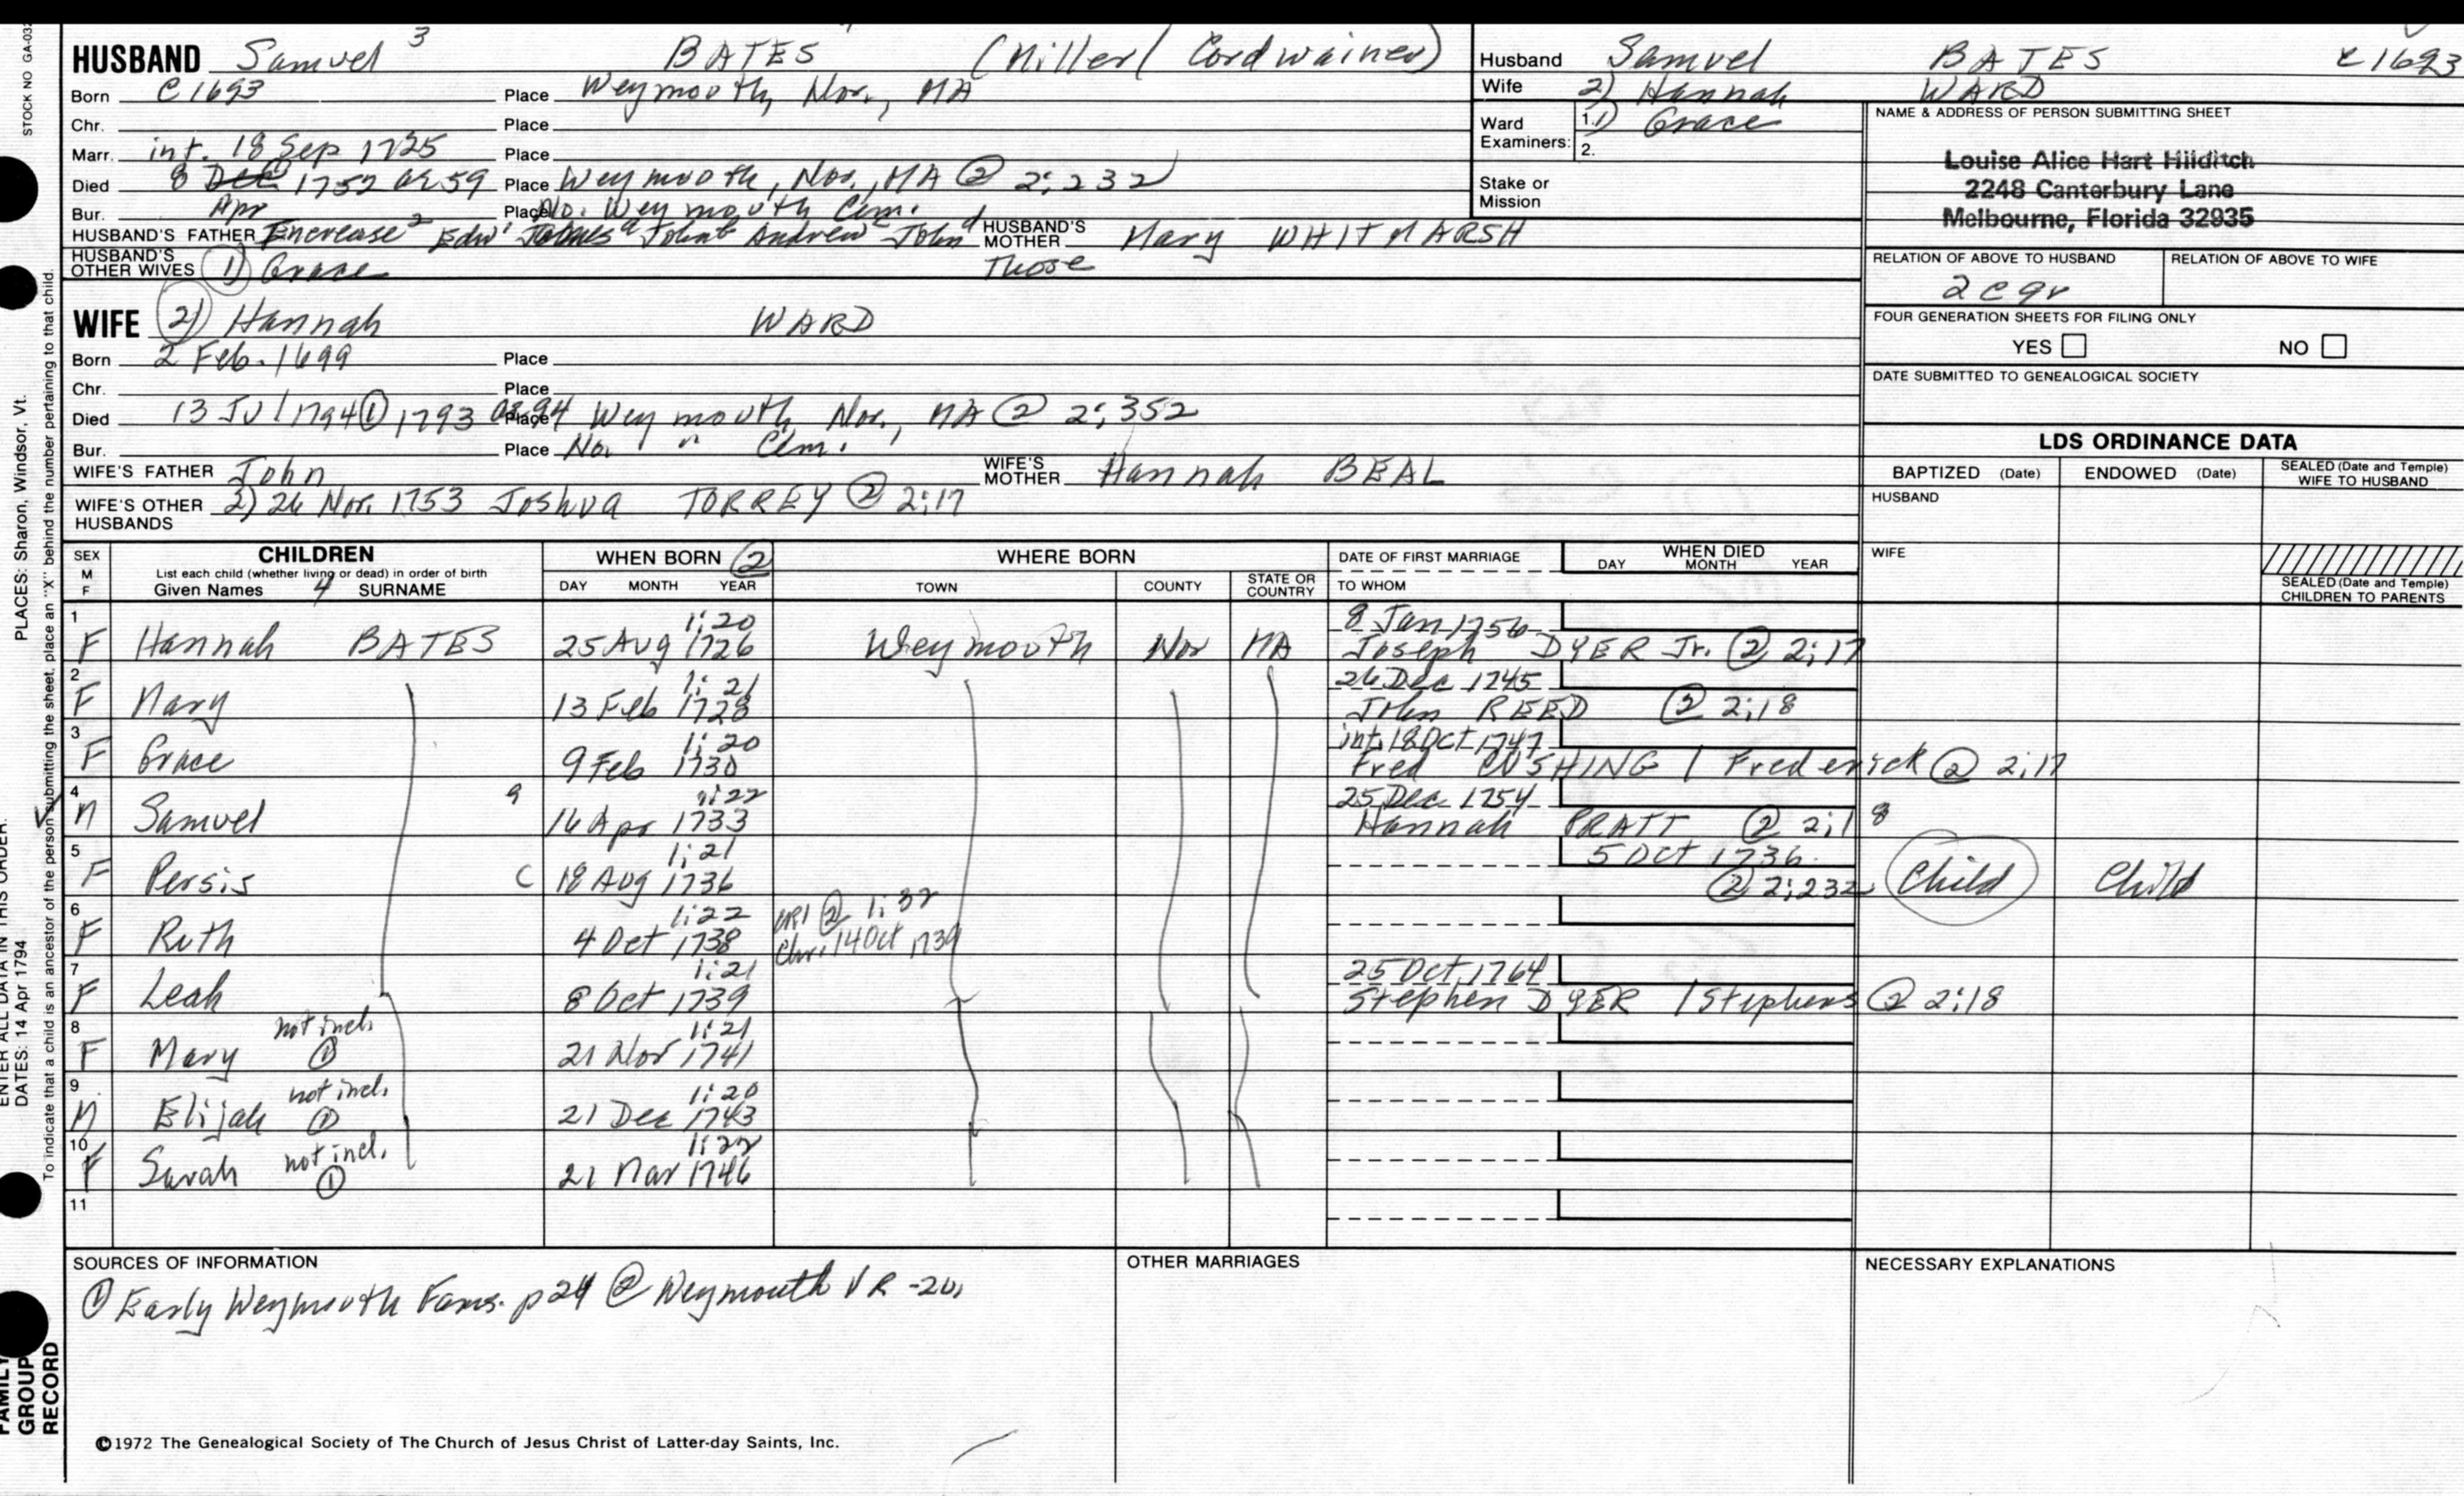 HUSBAND Samuel 3 BATES (Miller/ Cordwainer)
Born c 1693 Place Weymouth, Nor., MA
Chr. Place
Marr. int. 18 Sep 1725 Place
Died 8 Dec 1752 ae 59 Place Weymouth, Nor., MA @ 2:232
Bur. Apr Place No. Weymouth Cem.
HUSBAND'S FATHER Increase 2 Edw 1 James a John b Andrew c John d HUSBAND'S MOTHER Mary WHITMARSH
HUSBAND'S OTHER WIVES 1) Grace Those
WIFE 2) Hannah WARD
Born 2 Feb. 1699 Place
Chr. Place
Died 13 Jul 1794 ① 1793 ae 94 Place Weymouth, Nor., MA ② 2:352
Bur. Place No. " Cem.
WIFE'S FATHER John WIFE'S MOTHER Hannah BEAL
WIFE'S OTHER HUSBANDS 2) 26 Nov. 1753 Joshua TORREY ② 2:17
Husband Samuel BATES c 1693
Wife 2) Hannah WARD
Ward Examiners: 1. 1) Grace
2.
Stake or Mission
NAME & ADDRESS OF PERSON SUBMITTING SHEET
Louise Alice Hart Hilditch
2248 Canterbury Lane
Melbourne, Florida 32935
RELATION OF ABOVE TO HUSBAND RELATION OF ABOVE TO WIFE
2 c gr
FOUR GENERATION SHEETS FOR FILING ONLY
YES NO
DATE SUBMITTED TO GENEALOGICAL SOCIETY
LDS ORDINANCE DATA
BAPTIZED (Date) ENDOWED (Date) SEALED (Date and Temple) WIFE TO HUSBAND
HUSBAND
WIFE
SEALED (Date and Temple) CHILDREN TO PARENTS
SEX M F CHILDREN WHEN BORN ② WHERE BORN DATE OF FIRST MARRIAGE WHEN DIED
List each child (whether living or dead) in order of birth
Given Names 4 SURNAME DAY MONTH YEAR TOWN COUNTY STATE OR COUNTRY TO WHOM DAY MONTH YEAR
1 1:20 8 Jan 1756
F Hannah BATES 25 Aug 1726 Weymouth Nor MA Joseph DYER Jr. ② 2:17
2 1:21 26 Dec 1745
F Mary 13 Feb 1728 John REED ② 2:18
3 1:20 int. 18 Oct 1747
F Grace 9 Feb 1730 Fred CUSHING / Frederick ② 2:17
4 9 1:22 25 Dec 1754
M Samuel 16 Apr 1733 Hannah PRATT ② 2:18
5 1:21 5 Oct 1736
F Persis C 18 Aug 1736 ② 2:232 Child Child
6 1:22 ② 1:32
F Ruth 4 Oct 1738 Chr. 14 Oct 1739
7 1:21 25 Oct 1764
F Leah 8 Oct 1739 Stephen DYER / Stephens ② 2:18
8 not incl. 1:21
F Mary ① 21 Nov 1741
9 not incl. 1:20
M Elijah ① 21 Dec 1743
10 not incl. 1:22
F Sarah ① 21 Mar 1746
11
SOURCES OF INFORMATION OTHER MARRIAGES NECESSARY EXPLANATIONS
① Early Weymouth Fams. p 24 ② Weymouth VR -20,
©1972 The Genealogical Society of The Church of Jesus Christ of Latter-day Saints, Inc.
STOCK NO GA-032
PLACES: Sharon, Windsor, Vt.
ENTER ALL DATA IN THIS ORDER:
DATES: 14 Apr 1794
To indicate that a child is an ancestor of the person submitting the sheet, place an "X" behind the number pertaining to that child.
FAMILY GROUP RECORD